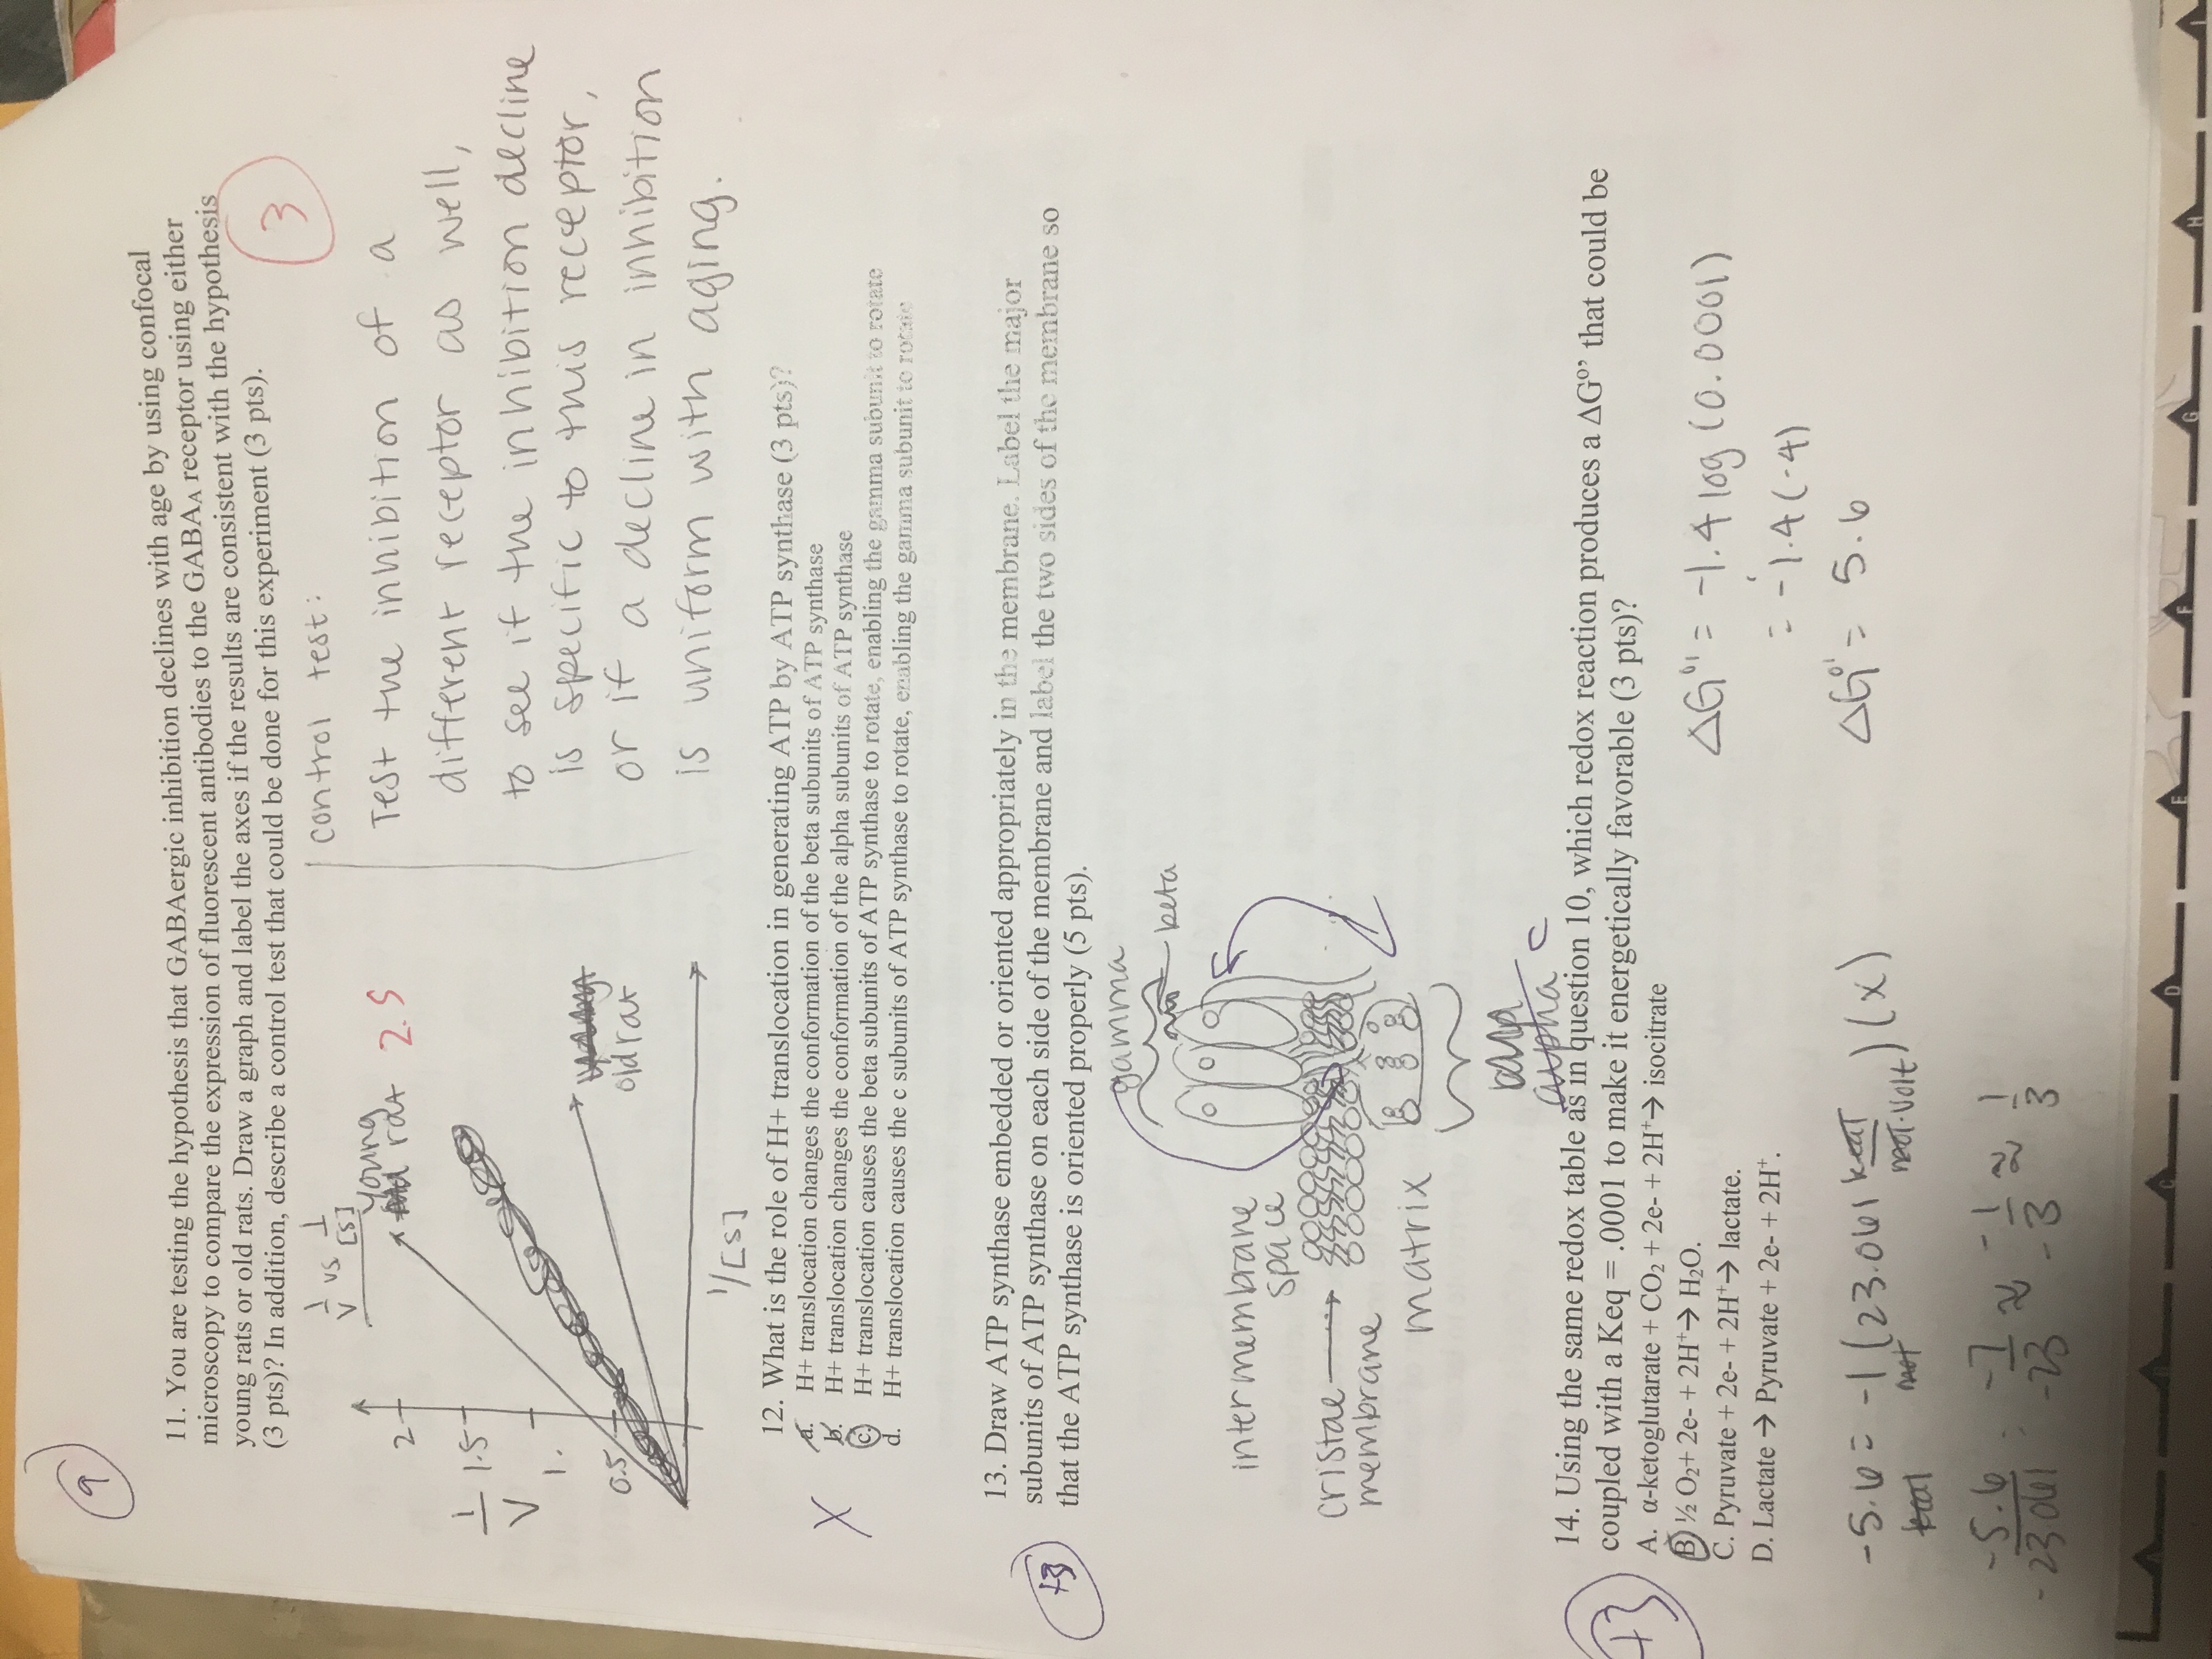 9
11. You are testing the hypothesis that GABAergic inhibition declines with age by using confocal
microscopy to compare the expression of fluorescent antibodies to the GABAA receptor using either
young rats or old rats. Draw a graph and label the axes if the results are consistent with the hypothesis
(3 pts)? In addition, describe a control test that could be done for this experiment (3 pts).
3
1/V vs 1/[S]
young
rat 2.5
2
1/V
1.5
1.
0.5
old rat
1/[S]
control test:
Test the inhibition of a
different receptor as well,
to see if the inhibition decline
is specific to this receptor,
or if a decline in inhibition
is uniform with aging.
12. What is the role of H+ translocation in generating ATP by ATP synthase (3 pts)?
X
a. H+ translocation changes the conformation of the beta subunits of ATP synthase
b. H+ translocation changes the conformation of the alpha subunits of ATP synthase
c. H+ translocation causes the beta subunits of ATP synthase to rotate, enabling the gamma subunit to rotate
d. H+ translocation causes the c subunits of ATP synthase to rotate, enabling the gamma subunit to rotate
13. Draw ATP synthase embedded or oriented appropriately in the membrane. Label the major
subunits of ATP synthase on each side of the membrane and label the two sides of the membrane so
that the ATP synthase is oriented properly (5 pts).
+3
gamma
beta
intermembrane
space
cristae
membrane
matrix
alpha c
14. Using the same redox table as in question 10, which redox reaction produces a ΔG°' that could be
coupled with a Keq = .0001 to make it energetically favorable (3 pts)?
+3
A. α-ketoglutarate + CO2 + 2e- + 2H+→ isocitrate
B) ½ O2+ 2e- + 2H+→ H2O.
C. Pyruvate + 2e- + 2H+→ lactate.
D. Lactate → Pyruvate + 2e- + 2H+.
ΔG°' = -1.4 log (0.0001)
= -1.4 (-4)
ΔG°' = 5.6
-5.6 kcal = -1 mol (23.061 kcal/mol·volt) (x)
-5.6/-23.061 = -7/-23 ≈ -1/-3 ≈ 1/3
C
D
E
F
G
H